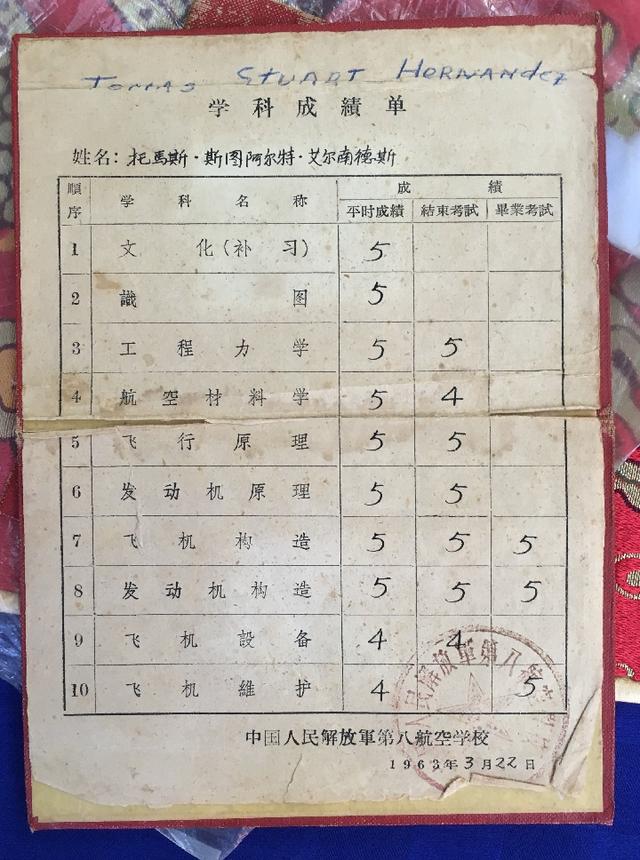 Tomas Stuart Hernandez
学科成績单
姓名：托馬斯·斯图阿尔特·艾尔南德斯
順序 学科名称 成績
平时成績 結束考試 畢業考試
1 文化(补习) 5
2 識图 5
3 工程力学 5 5
4 航空材料学 5 4
5 飞行原理 5 5
6 发动机原理 5 5
7 飞机构造 5 5 5
8 发动机构造 5 5 5
9 飞机設备 4 4
10 飞机維护 4 5
人民解放軍第八航
中国人民解放軍第八航空学校
1963年3月22日